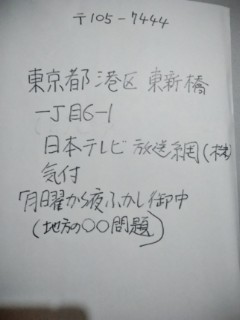 〒105-7444
東京都港区東新橋
一丁目6-1
日本テレビ放送網(株)
気付
月曜から夜ふかし御中
(地方の○○問題)